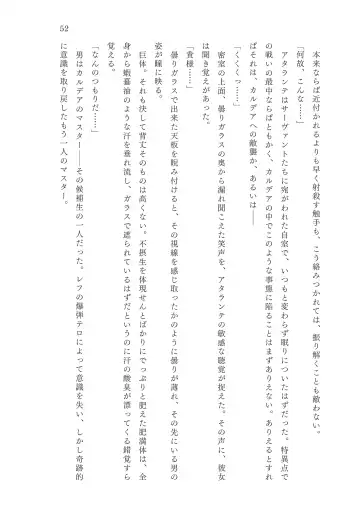 52
本来ならば近付かれるよりも早く射殺す触手も、こう絡みつかれては、振り解くことも敵わない。
「何故、こんな……」
アタランテはサーヴァントたちに宛がわれた自室で、いつもと変わらず眠りについたはずだった。特異点で
の戦いの最中ならばともかく、カルデアの中でこのような事態に陥ることはまずありえない。ありえるとすれ
ばそれは、カルデアへの敵襲か、あるいは――
「くくくっ……」
密室の上面、曇りガラスの奥から漏れ聞こえた笑声を、アタランテの敏感な聴覚が捉えた。その声に、彼女
は聞き覚えがあった。
「貴様……」
曇りガラスで出来た天板を睨み付けると、その視線を感じ取ったかのように曇りが薄れ、その先にいる男の
姿が瞳に映る。
巨体。それも決して背丈そのものは高くない。不摂生を体現せんとばかりにでっぷりと肥えた肥満体は、全
身から蝦蟇油のような汗を垂れ流し、ガラスで遮られているはずだというのに汗の酸臭が漂ってくる錯覚すら
覚える。
「なんのつもりだ……」
男はカルデアのマスター――その候補生の一人だった。レフの爆弾テロによって意識を失い、しかし奇跡的
に意識を取り戻したもう一人のマスター。